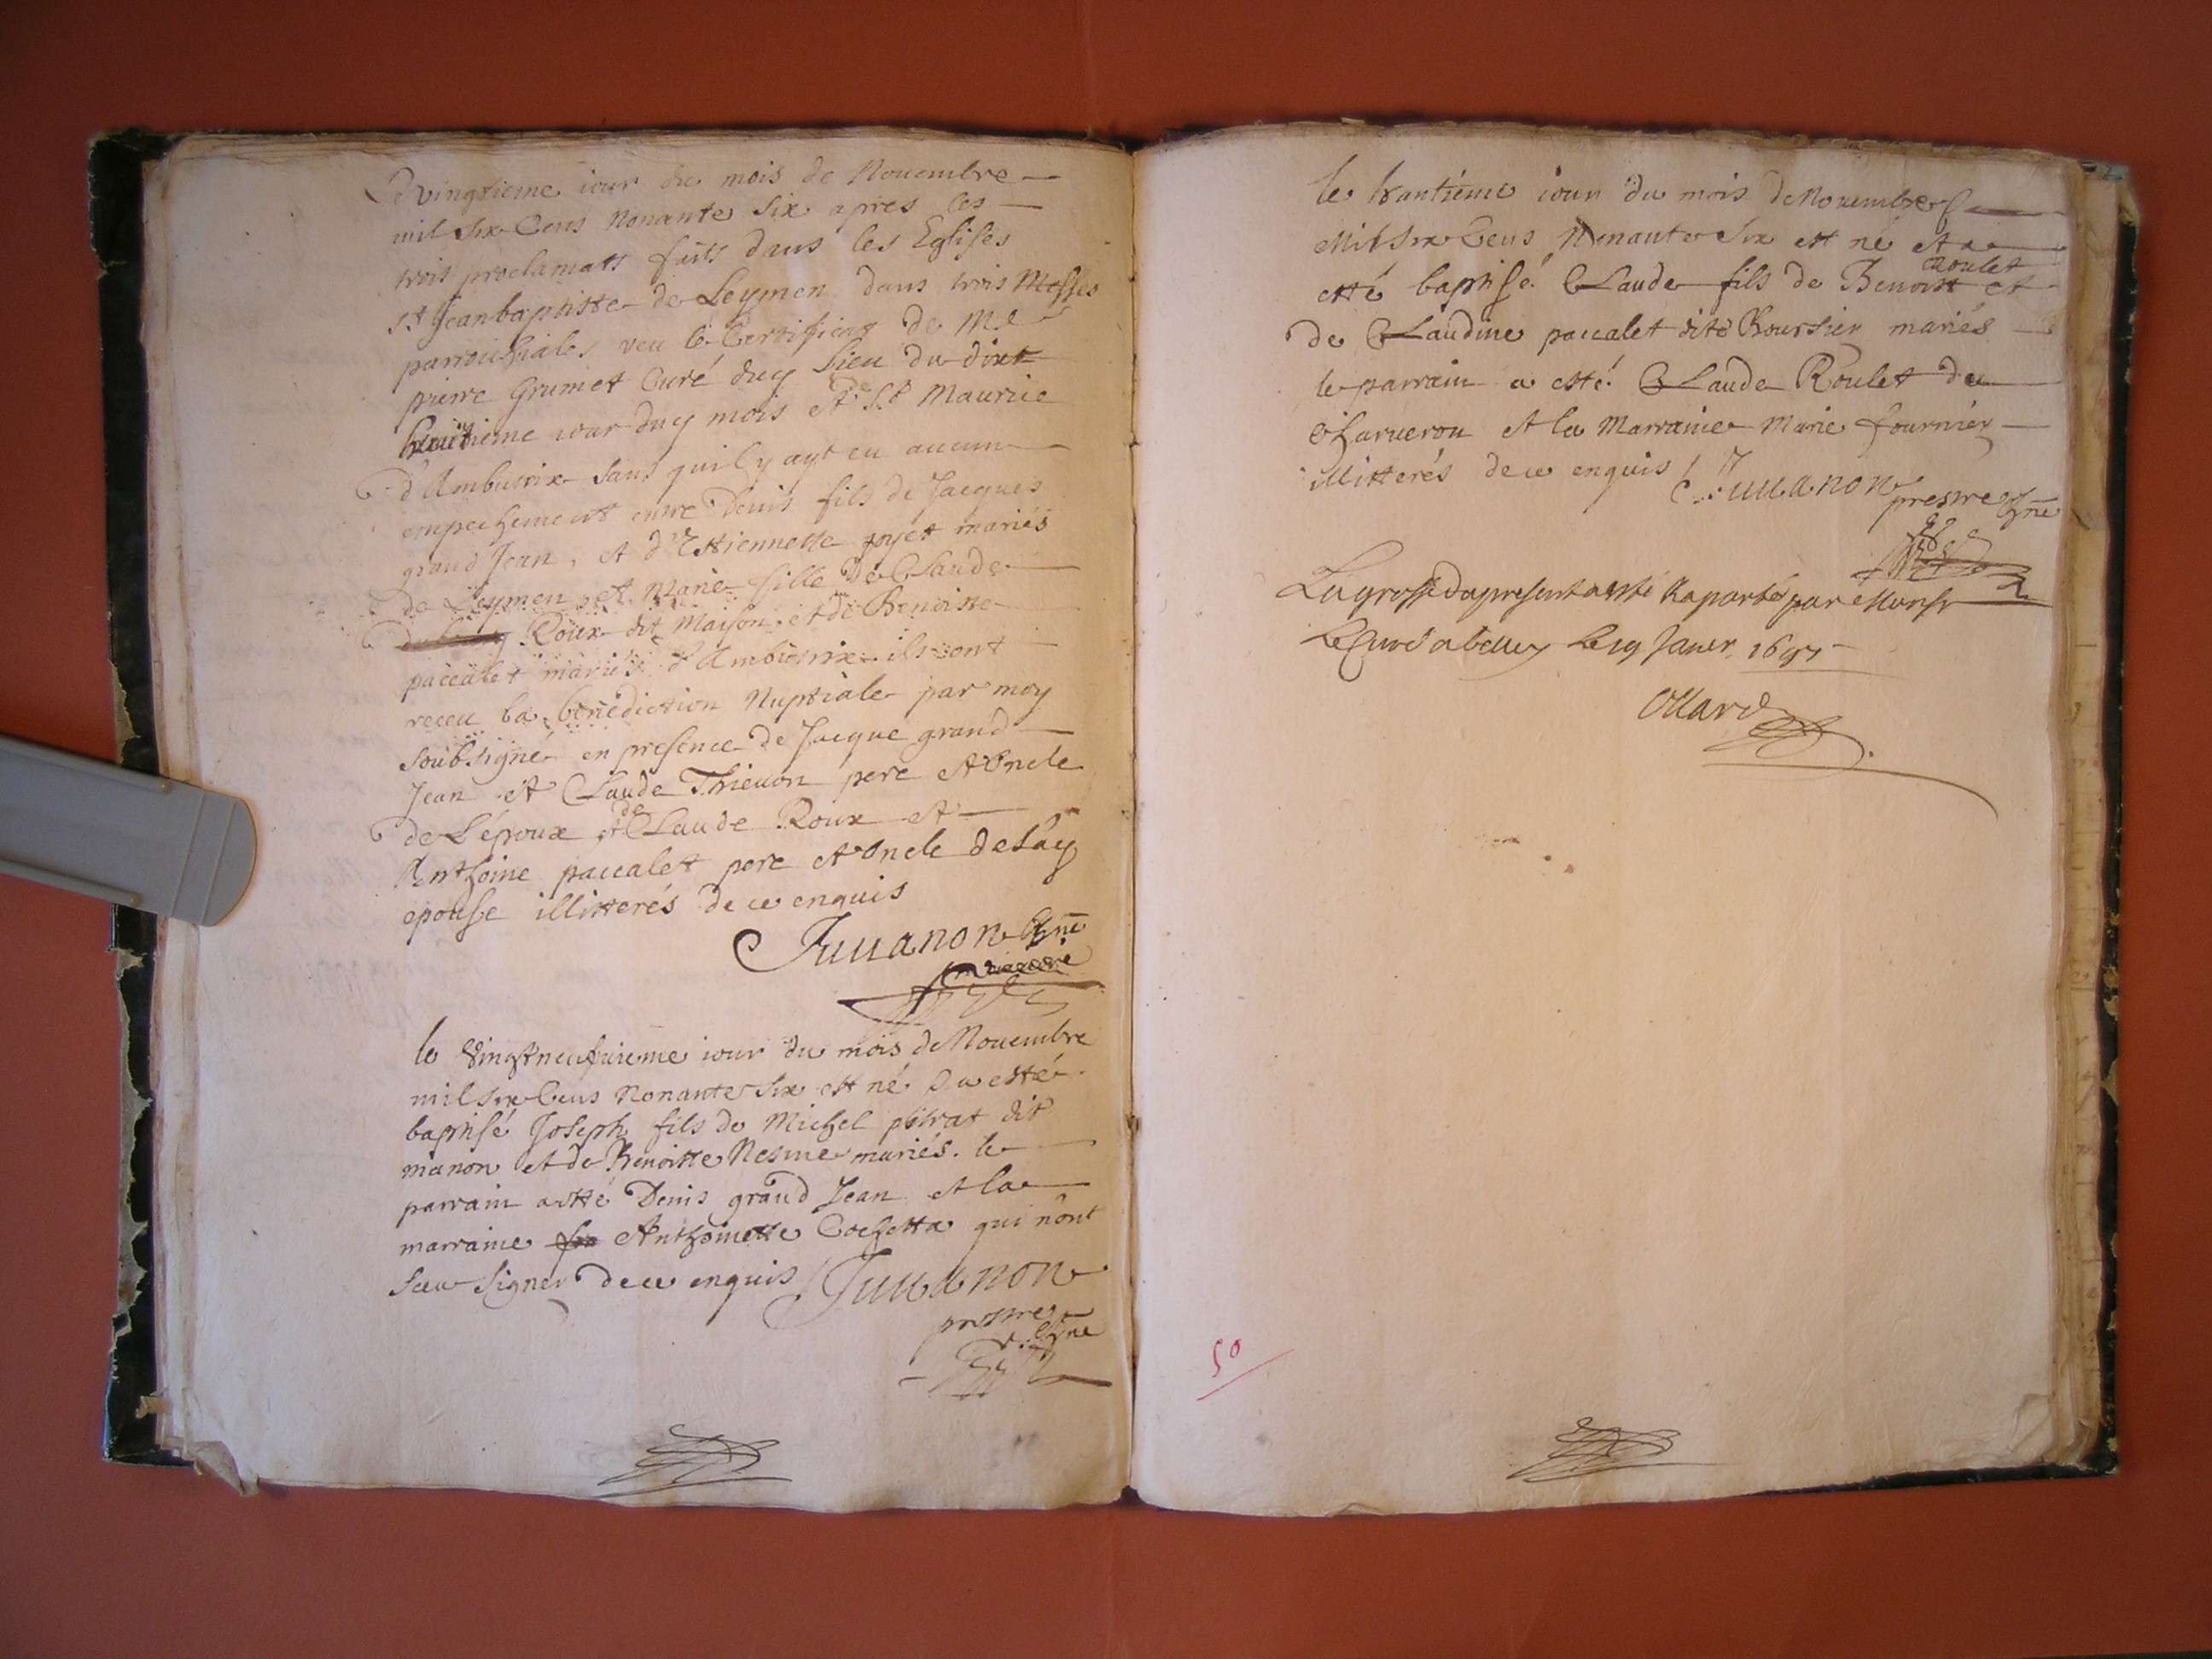 Le vingtieme iour du mois de Nouembre
mil six Cens Nonante six apres les
trois proclamats faits dans les Eglises
St Jeanbaptiste de Leymen dans trois Messes
parroichiales veu le Certificat de Mre
pierre Grumet Curé duy lieu du dixt
huitieme iour duy mois et de St Maurice
d'Ambutrix sans quil y ayt eu aucun
empechement entre Denis fils de Jacques
grand Jean, et d'Estiennette poyet mariés
de Leymen, et Marie fille de Claude
Roux dit Maison, et de Benoiste
paccalet mariés d'Ambutrix ils ont
receu la benediction Nuptiale par moy
soubsigné en presence de Jacque grand
Jean et Claude Thieuon pere et Oncle
de L'époux et de Claude Roux et
Anthoine paccalet pere et Oncle de lay
epouse illitterés de ce enquis
Juuanon Chne
le vingtneufuieme iour du mois de Nouembre
mil six Cens Nonante six est né & a esté
baptisé Joseph fils de Michel pitrat dit
manon et de Benoitte Nesme mariés. le
parrain a etté Denis grand Jean et la
marraine Anthoinette Cochetta qui n'ont
sceu signer de ce enquis Juuanon
prestre
Chne
le trantiéme iour du mois de Nouembre
Mil six Cens Nonante six est né et a
etté baptisé Claude fils de Benoist Roulet et
de Claudine paccalet dite Boursier mariés
le parrain a esté Claude Roulet de
Charueron et la Marraine Marie fournier
illitterés de ce enquis Juuanon
prestre Chne
La grosse du present a esté Raportée par Monsr
Le Curé a belley Le 19 Janer 1697
Ollard
50